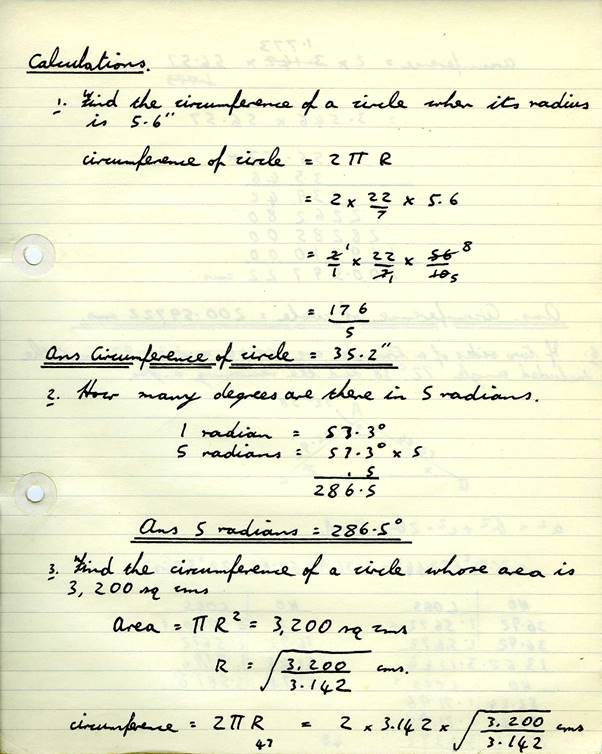 Calculations.
1. Find the circumference of a circle when its radius
is 5.6"
circumference of circle = 2 π R
= 2 × 22/7 × 5.6
= 2¹/1 × 22/7₁ × 56⁸/10₅
= 176/5
Ans Circumference of circle = 35.2"
2. How many degrees are there in 5 radians.
1 radian = 57.3°
5 radians = 57.3° × 5
. 5
286.5
Ans 5 radians = 286.5°
3. Find the circumference of a circle whose area is
3,200 sq cms
Area = π R² = 3,200 sq cms
R = √3,200/3.142 cms.
circumference = 2 π R = 2 × 3.142 × √3,200/3.142 cms
47